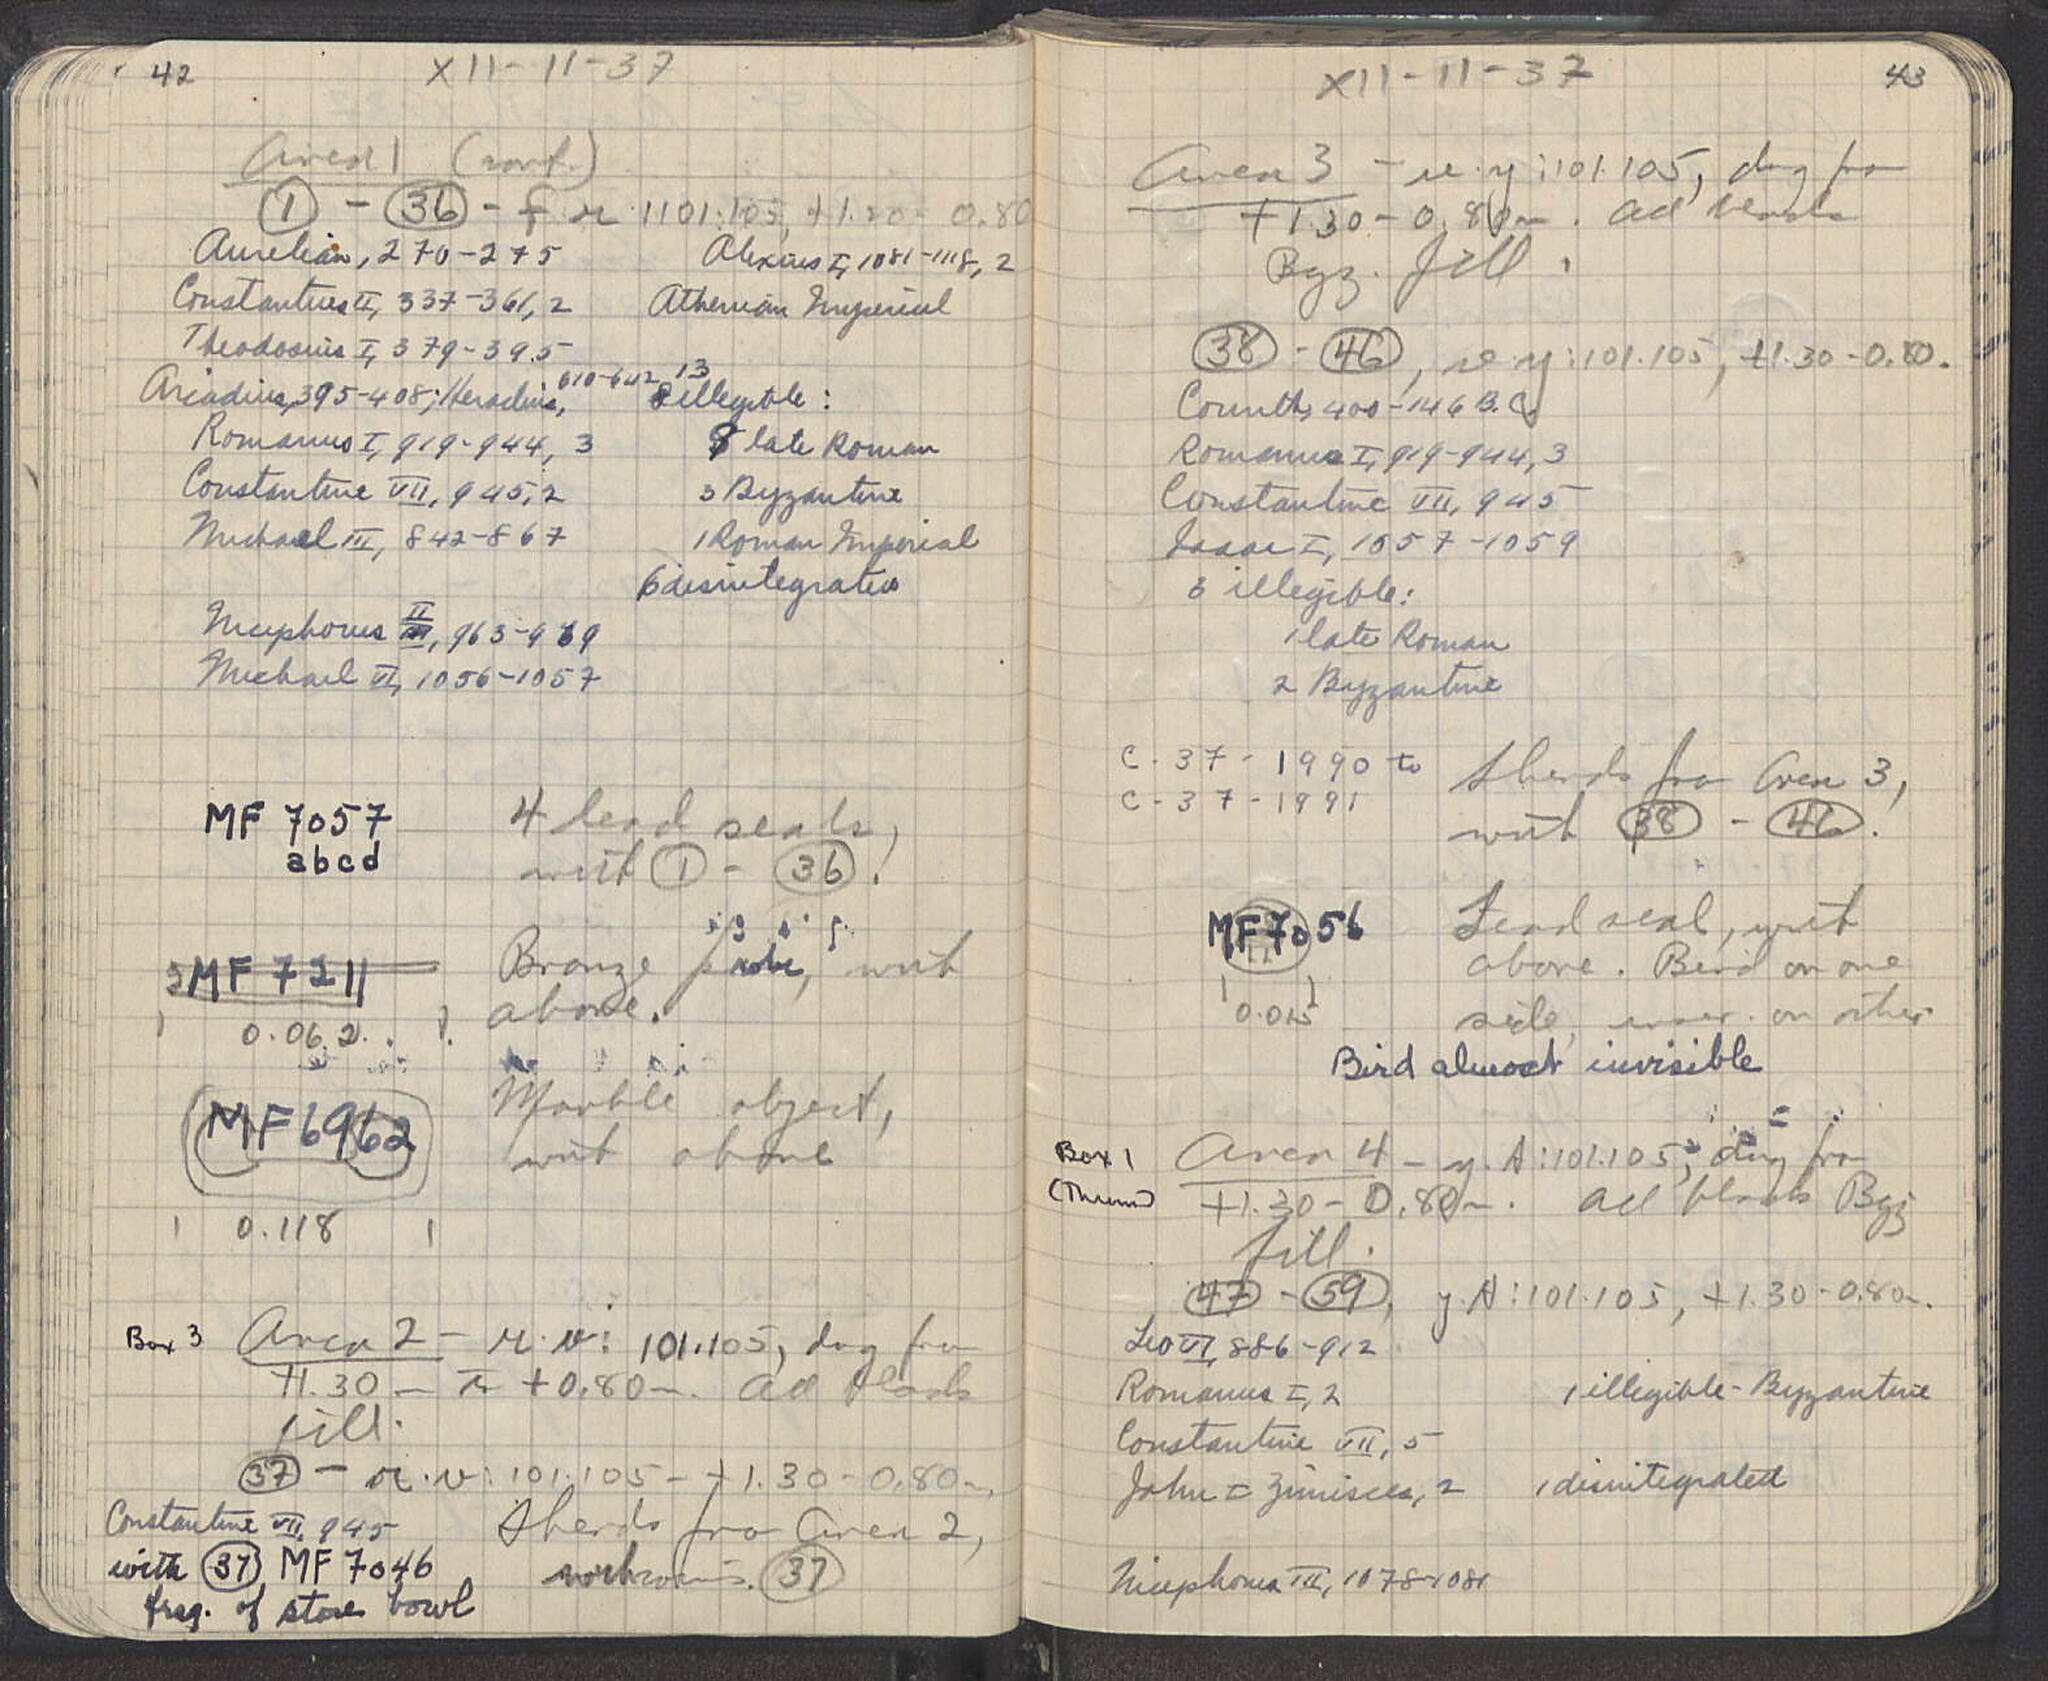 42
XII-11-37
Area 1 (cont.)
1 - 36 - 101:105, +1.20 - 0.80
Aurelian, 270-275
Constantius II, 337-361, 2
Theodosius I, 379-395
Arcadius, 395-408; Heraclius, 610-642
Romanus I, 919-944, 3
Constantine VII, 945, 2
Michael III, 842-867
Nicephorus II, 963-969
Michael VI, 1056-1057
Alexius I, 1081-1118, 2
Athenian Imperial
13 illegible:
late Roman
3 Byzantine
1 Roman Imperial
6 disintegrated
MF 7057
abcd
4 lead seals,
with 1 - 36.
MF 7211
0.062
Bronze probe, with
above.
MF 6962
0.118
Marble object,
with above
Box 3
Area 2 - r.v: 101.105, dug from
+1.30 - +0.80m. All black
fill.
37 - r.v: 101.105 - +1.30 - 0.80m.
Constantine VII, 945
with 37 MF 7046
frag. of stone bowl
Sherds from Area 2,
with coin 37
XII-11-37
43
Area 3 - :101.105, dug from
+1.30 - 0.80m. All black
Byz. fill.
38 - 46, :101.105, +1.30 - 0.80.
Corinth, 400-146 B.C.
Romanus I, 919-944, 3
Constantine VII, 945
Isaac I, 1057-1059
3 illegible:
1 late Roman
2 Byzantine
C-37-1990 to
C-37-1991
Sherds from Area 3,
with 38 - 46.
MF 7056
0.015
Lead seal, with
above. Bird on one
side, inscr. on other
Bird almost invisible
Box 1
Area 4 - :101.105, dug from
+1.30 - 0.80m. All black Byz
fill.
47 - 59, :101.105, +1.30 - 0.80m.
Leo VI, 886-912
Romanus I, 2
Constantine VII, 5
John I Zimisces, 2
Nicephorus III, 1078-1081
1 illegible - Byzantine
1 disintegrated